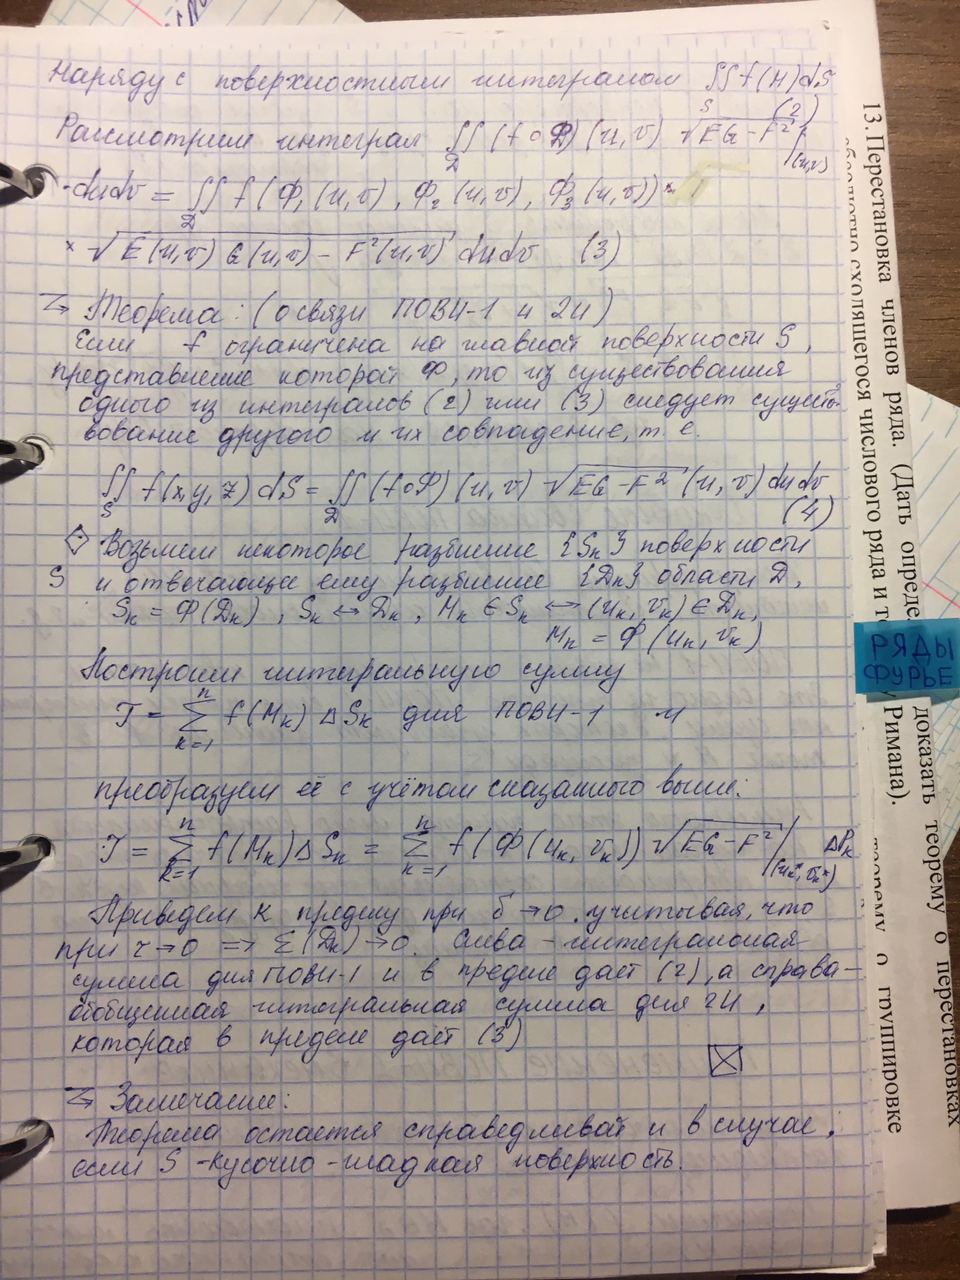 Наряду с поверхностным интегралом ∬_S f(M)dS (2)
Рассмотрим интеграл ∬_D (f∘Ф)(u,v) √(EG-F²)|_(u,v)
·dudv = ∬_D f(Ф₁(u,v), Ф₂(u,v), Ф₃(u,v)) ×
× √(E(u,v)G(u,v) - F²(u,v)) dudv (3)
Теорема: (о связи ПОВИ-1 и 2И)
Если f ограничена на главной поверхности S,
представление которой Ф, то из существования
одного из интегралов (2) или (3) следует сущест-
вование другого и их совпадение, т.е.
∬_S f(x,y,z)dS = ∬_D (f∘Ф)(u,v) √(EG-F²) (u,v)dudv
(4)
Возьмем некоторое разбиение {Sₖ} поверхности
S и отвечающее ему разбиение {Dₖ} области D,
Sₖ = Ф(Dₖ), Sₖ ↔ Dₖ, Mₖ ∈ Sₖ ↔ (uₖ, vₖ) ∈ Dₖ,
Mₖ = Ф(uₖ, vₖ)
Построим интегральную сумму
T = ∑_{k=1}^{n} f(Mₖ) ΔSₖ для ПОВИ-1 и
преобразуем её с учётом сказанного выше:
T = ∑_{k=1}^{n} f(Mₖ)ΔSₖ = ∑_{k=1}^{n} f(Ф(uₖ, vₖ)) √(EG-F²)|_(uₖ*, vₖ*) ΔPₖ
Приведем к пределу при δ→0, учитывая, что
при τ→0 => Σ(Dₖ)→0. Слева - интегральная
сумма для ПОВИ-1 и в пределе дает (2), а справа-
обобщенная интегральная сумма для 2И,
которая в пределе даёт (3)
Замечание:
Теорема остается справедливой и в случае,
если S - кусочно-гладкая поверхность.
13. Перестановка членов ряда. (Дать опреде доказать теорему о перестановках
сходящегося числового ряда и те Римана).
РЯДЫ
ФУРЬЕ
теорему о группировке